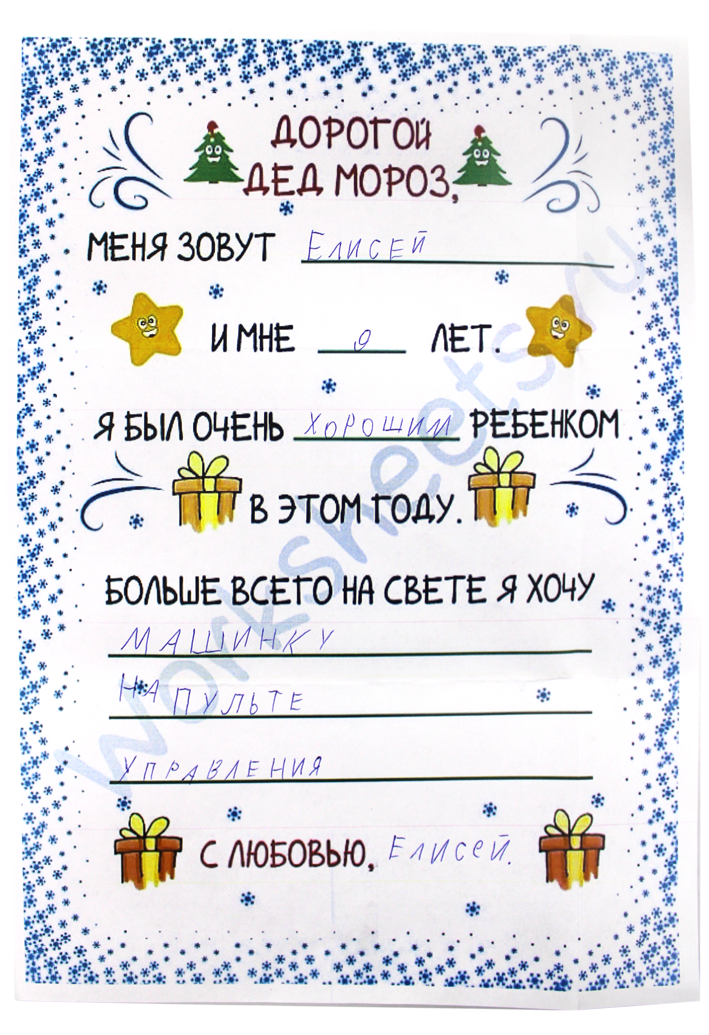 ДОРОГОЙ
ДЕД МОРОЗ,
МЕНЯ ЗОВУТ Елисей
И МНЕ 9 ЛЕТ.
Я БЫЛ ОЧЕНЬ ХОРОШИМ РЕБЕНКОМ
В ЭТОМ ГОДУ.
БОЛЬШЕ ВСЕГО НА СВЕТЕ Я ХОЧУ
МАШИНКУ
НА ПУЛЬТЕ
УПРАВЛЕНИЯ
С ЛЮБОВЬЮ, Елисей.
worksheets.ru